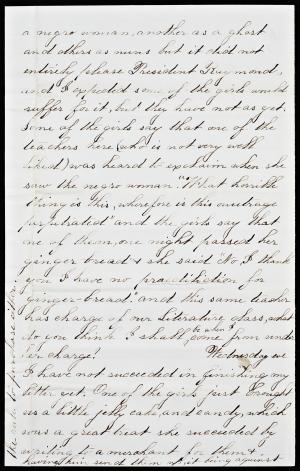 a negro woman, another as a ghost
and others as nuns but it did not
entirely please President Raymond,
and I expected some of the girls would
suffer for it, but they have not as yet.
Some of the girls say that one of the
teachers here (who is not very well
liked) was heard to exclaim when she
saw the negro woman. "What horrible
thing is this, wherefore is this outrage
perpetrated" and the girls say that
one of them, one night passed her
ginger bread & she said "No I thank
you I have no predilection for
ginger-bread" and this same teacher
has charge of our Literature class, what
do you think I shall be when I come from under
her charge! Wednesday eve
I have not succeeded in finishing my
letter yet. One of the girls just brought
us a little jelly cake and candy, which
was a great treat she succeeded by
writing to a merchant for them &
having him send them up it being against